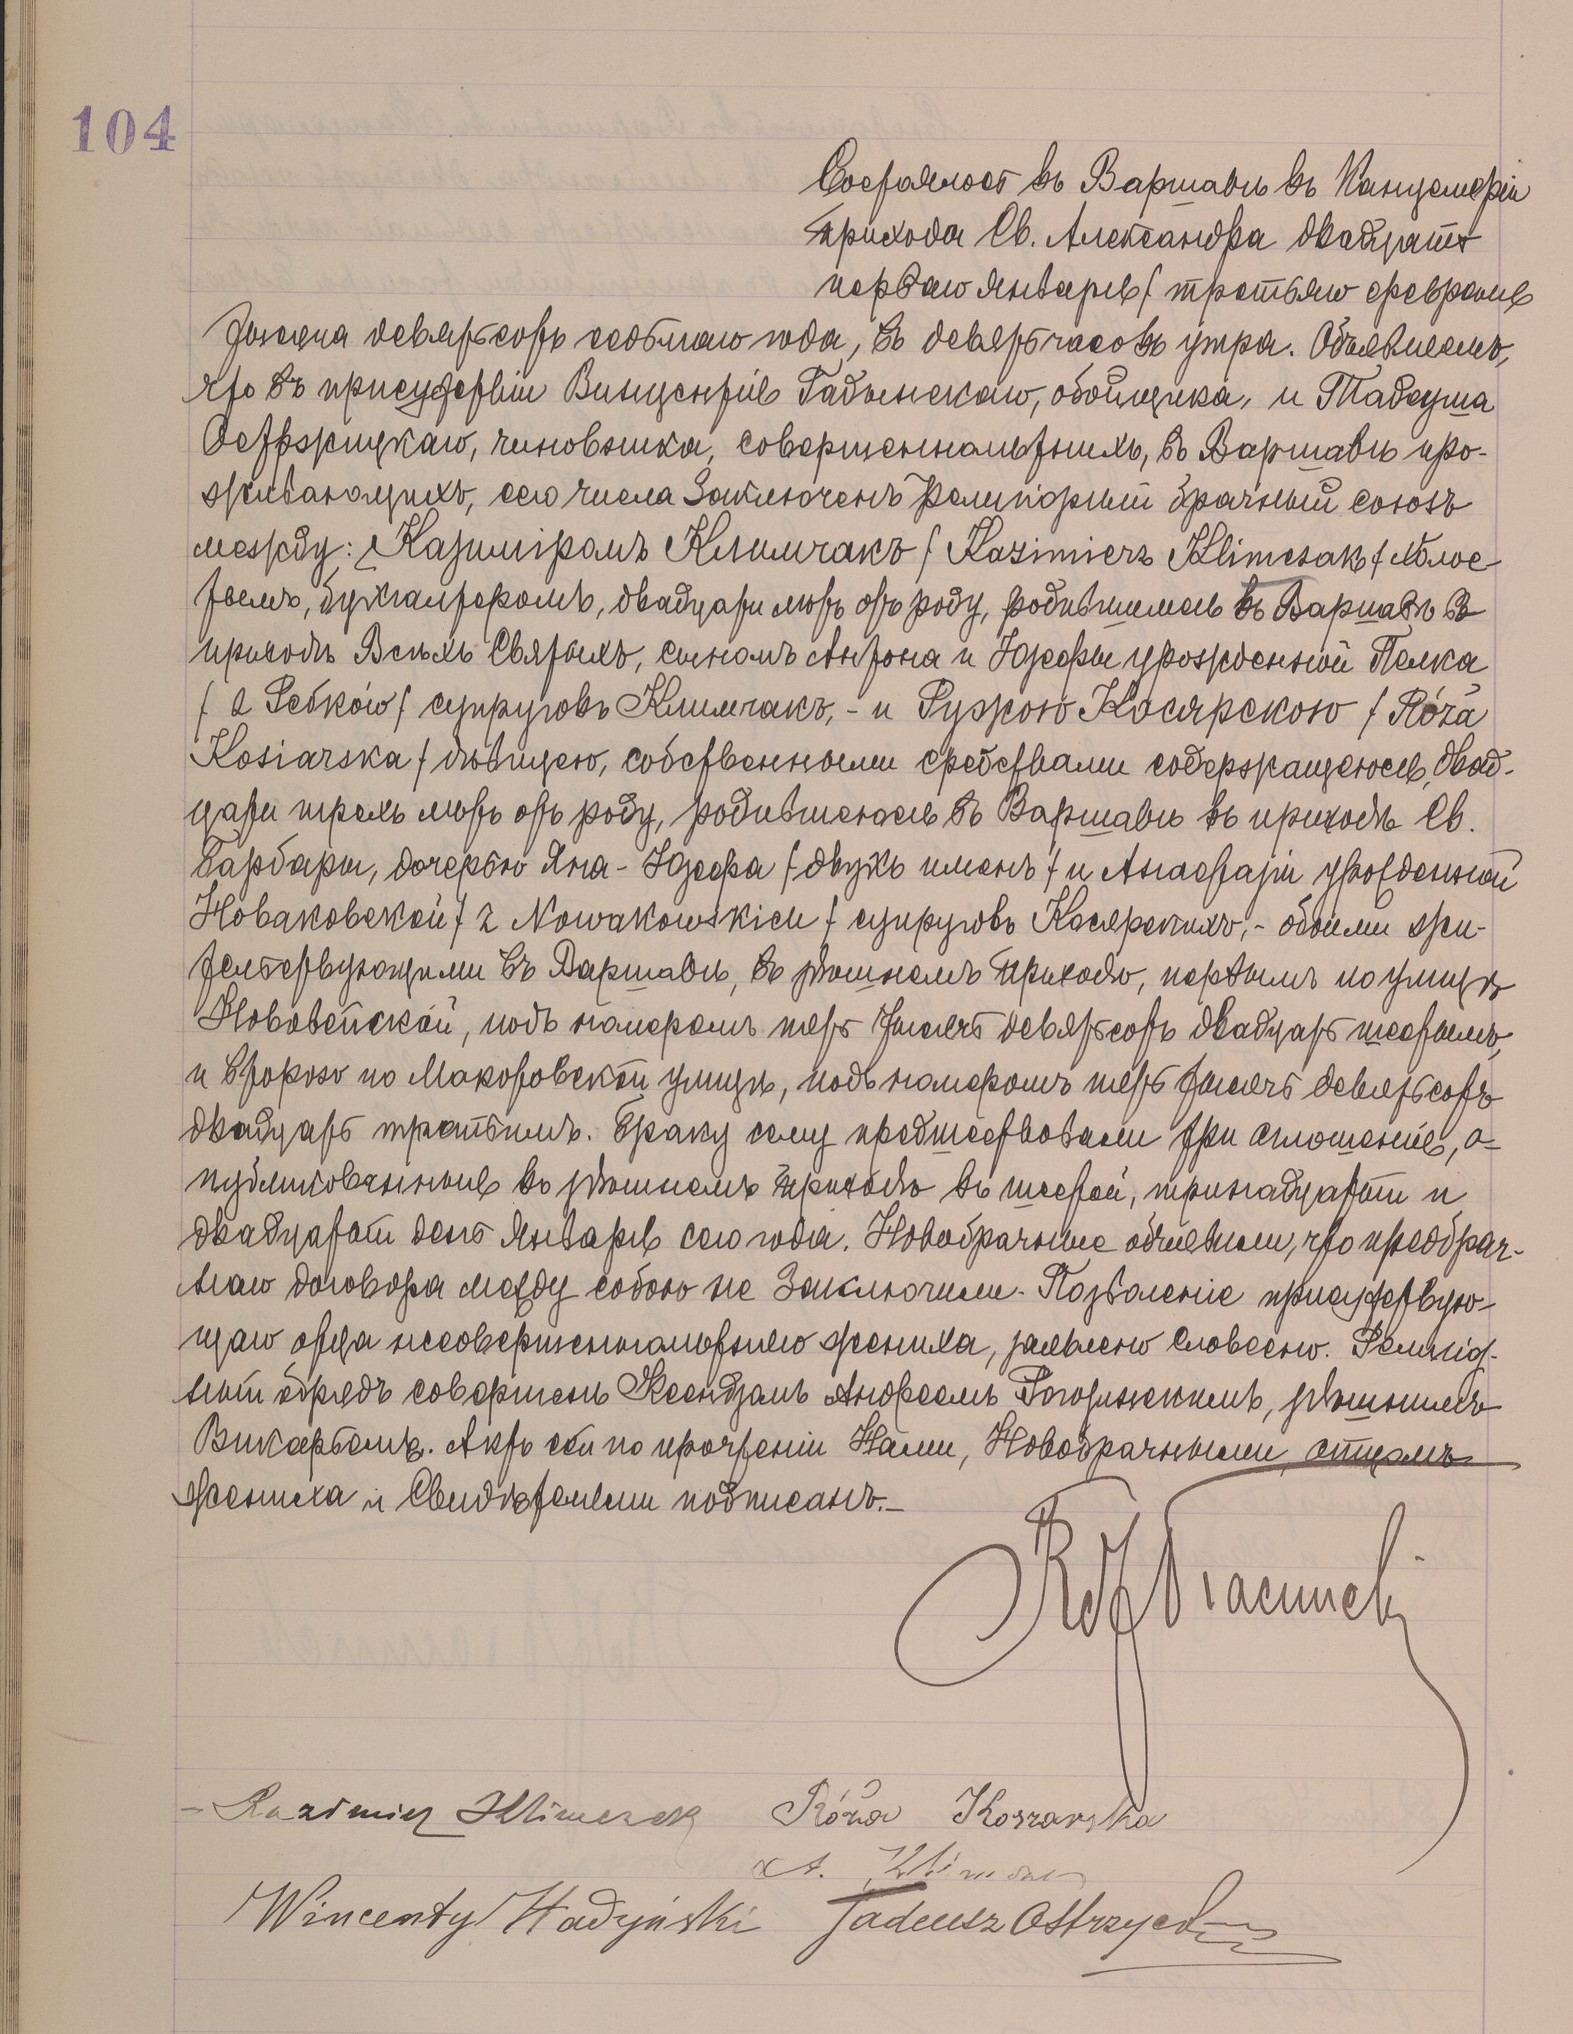 104
Состоялось въ Варшавѣ въ Канцеляріи
прихода Св. Александра двадцать
перваго Января / третьяго февраля
тысяча девятьсотъ седьмаго года, въ девять часовъ утра. Объявляемъ,
что въ присутствіи Винцентія Гадынскаго, обойщика, и Тадеуша
Остржицкаго, чиновника, совершеннолѣтнихъ, въ Варшавѣ про-
живающихъ, сего числа заключенъ религіозный брачный союзъ
между: Казиміромъ Климчакъ / Kazimierz Klimczak / холос-
тымъ, бухгалтеромъ, двадцати лѣтъ отъ роду, родившимся въ Варшавѣ въ
приходѣ Всѣхъ Святыхъ, сыномъ Антона и Юзефы урожденной Пелка
/ супруговъ Климчакъ, - и Ружою Косярскою / Róża
Kosiarska / дѣвицею, собственными средствами содержащеюся, двад-
цати трехъ лѣтъ отъ роду, родившеюся въ Варшавѣ въ приходѣ Св.
Барбары, дочерью Яна - Юзефа / двухъ именъ / и Анастазіи урожденной
Новаковской / z Nowakowskich / супруговъ Косярскихъ, - обоими жи-
тельствующими въ Варшавѣ, въ здѣшнемъ приходѣ, первымъ по улицѣ
Нововейской, подъ номеромъ пять тысячъ девятьсотъ двадцать шестымъ,
и второю по Мокотовской улицѣ, подъ номеромъ пять тысячъ девятьсотъ
двадцать третьимъ. Браку сему предшествовали три оглашенія, о-
публикованныя въ здѣшнемъ приходѣ въ шестой, тринадцатый и
двадцатый день Января сего года. Новобрачные объявили, что предбрач-
наго договора между собою не заключили. Позволеніе присутствую-
щаго отца несовершеннолѣтняго жениха, заявлено словесно. Религіоз-
ный обрядъ совершенъ Ксендзомъ Андреемъ здѣшнимъ
Викаріемъ. Актъ сей по прочтеніи Нами, Новобрачными, отцемъ
жениха и Свидѣтелями подписанъ.-
Kazimierz Klimczak Róża Kosiarska
A. Klimczak
Wincenty Hadyński Tadeusz